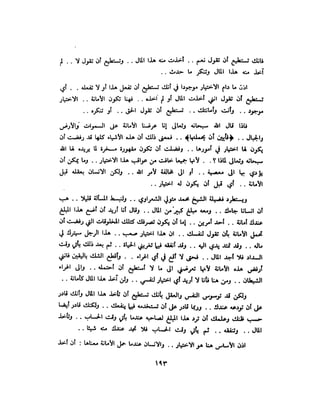 فانك تستطيع أن تقول نعم .. أخذت منه هذا المال .. وتستطيع أن تقول لا .. لم
آخذ منه هذا المال وتنكر ما حدث ..
اذن ما دام الاختيار موجودا في أنك تستطيع أن تفعل هذا أو لا تفعله .. أي
تستطيع أن تقول انني أخذت المال أو لم آخذه .. فهنا تكون الأمانة .. الاختيار
موجود .. وأنت وأمانتك .. تستطيع أن تقول الحق .. أو تنكره ..
فاذا قال الله سبحانه وتعالى إنا عرضنا الأمانة على السموات والأرض
والجبال .. ﴿فأبين أن يحملنها﴾ .. فمعنى ذلك أن هذه الأشياء كلها قد رفضت أن
يكون لها اختيار في أمورها .. وفضلت أن تكون مقهورة مسخرة لما يريده لها الله
سبحانه وتعالى لماذا ؟ .. لأنها جميعا خافت من عواقب هذا الاختيار .. وما يمكن أن
يؤدي بها الى معصية .. أو الى مخالفة لأمر الله .. ولكن الانسان بعقله قبل
الأمانة .. أي قبل أن يكون له اختيار ..
ويستطرد فضيلة الشيخ محمد متولي الشعراوي .. ولنبسط المسألة قليلا .. هب
أن انسانا جاءك .. ومعه مبلغ كبير من المال .. وقال أنا أريد أن أضع هذا المبلغ
عندك أمانة .. أحد أمرين .. إما أن يكون تصرفك كتلك المخلوقات التي رفضت أن
تحمل الأمانة بأن تقول لنفسك .. ان هذا اختيار صعب .. هذا الرجل سيترك لي
ماله .. وقد تمتد يدي اليه .. وقد أنفقه فيما تغريني الحياة .. ثم بعد ذلك يأتي وقت
السداد فلا أجد المال .. فحتى لا أقع في أي اغراء .. وأقطع الشك باليقين فانني
أرفض هذه الأمانة لأنها تعرضني الى ما لا أستطيع أن أحتمله .. والى اغراء
الشيطان .. ومن هنا فأنا لا أريد أي اختيار لنفسي .. ولن آخذ هذا المال كأمانة ..
ولكن قد توسوس النفس والعقل بأنك تستطيع أن تأخذ هذا المال وأنك قادر
على أن تودعه عندك .. وربما قادر على أن تستخدمه فيما ينفعك .. ولكنك قادر أيضا
حسب ظنك وعلمك أن ترد هذا المبلغ لصاحبه عندما يأتي وقت الحساب .. وتأخذ
المال .. وتنفقه .. ثم يأتي وقت الحساب فلا تجد عندك منه شيئا ..
اذن الأساس هنا هو الاختيار .. والانسان عندما حمل الأمانة معناها : أن أخذ
١٩٣